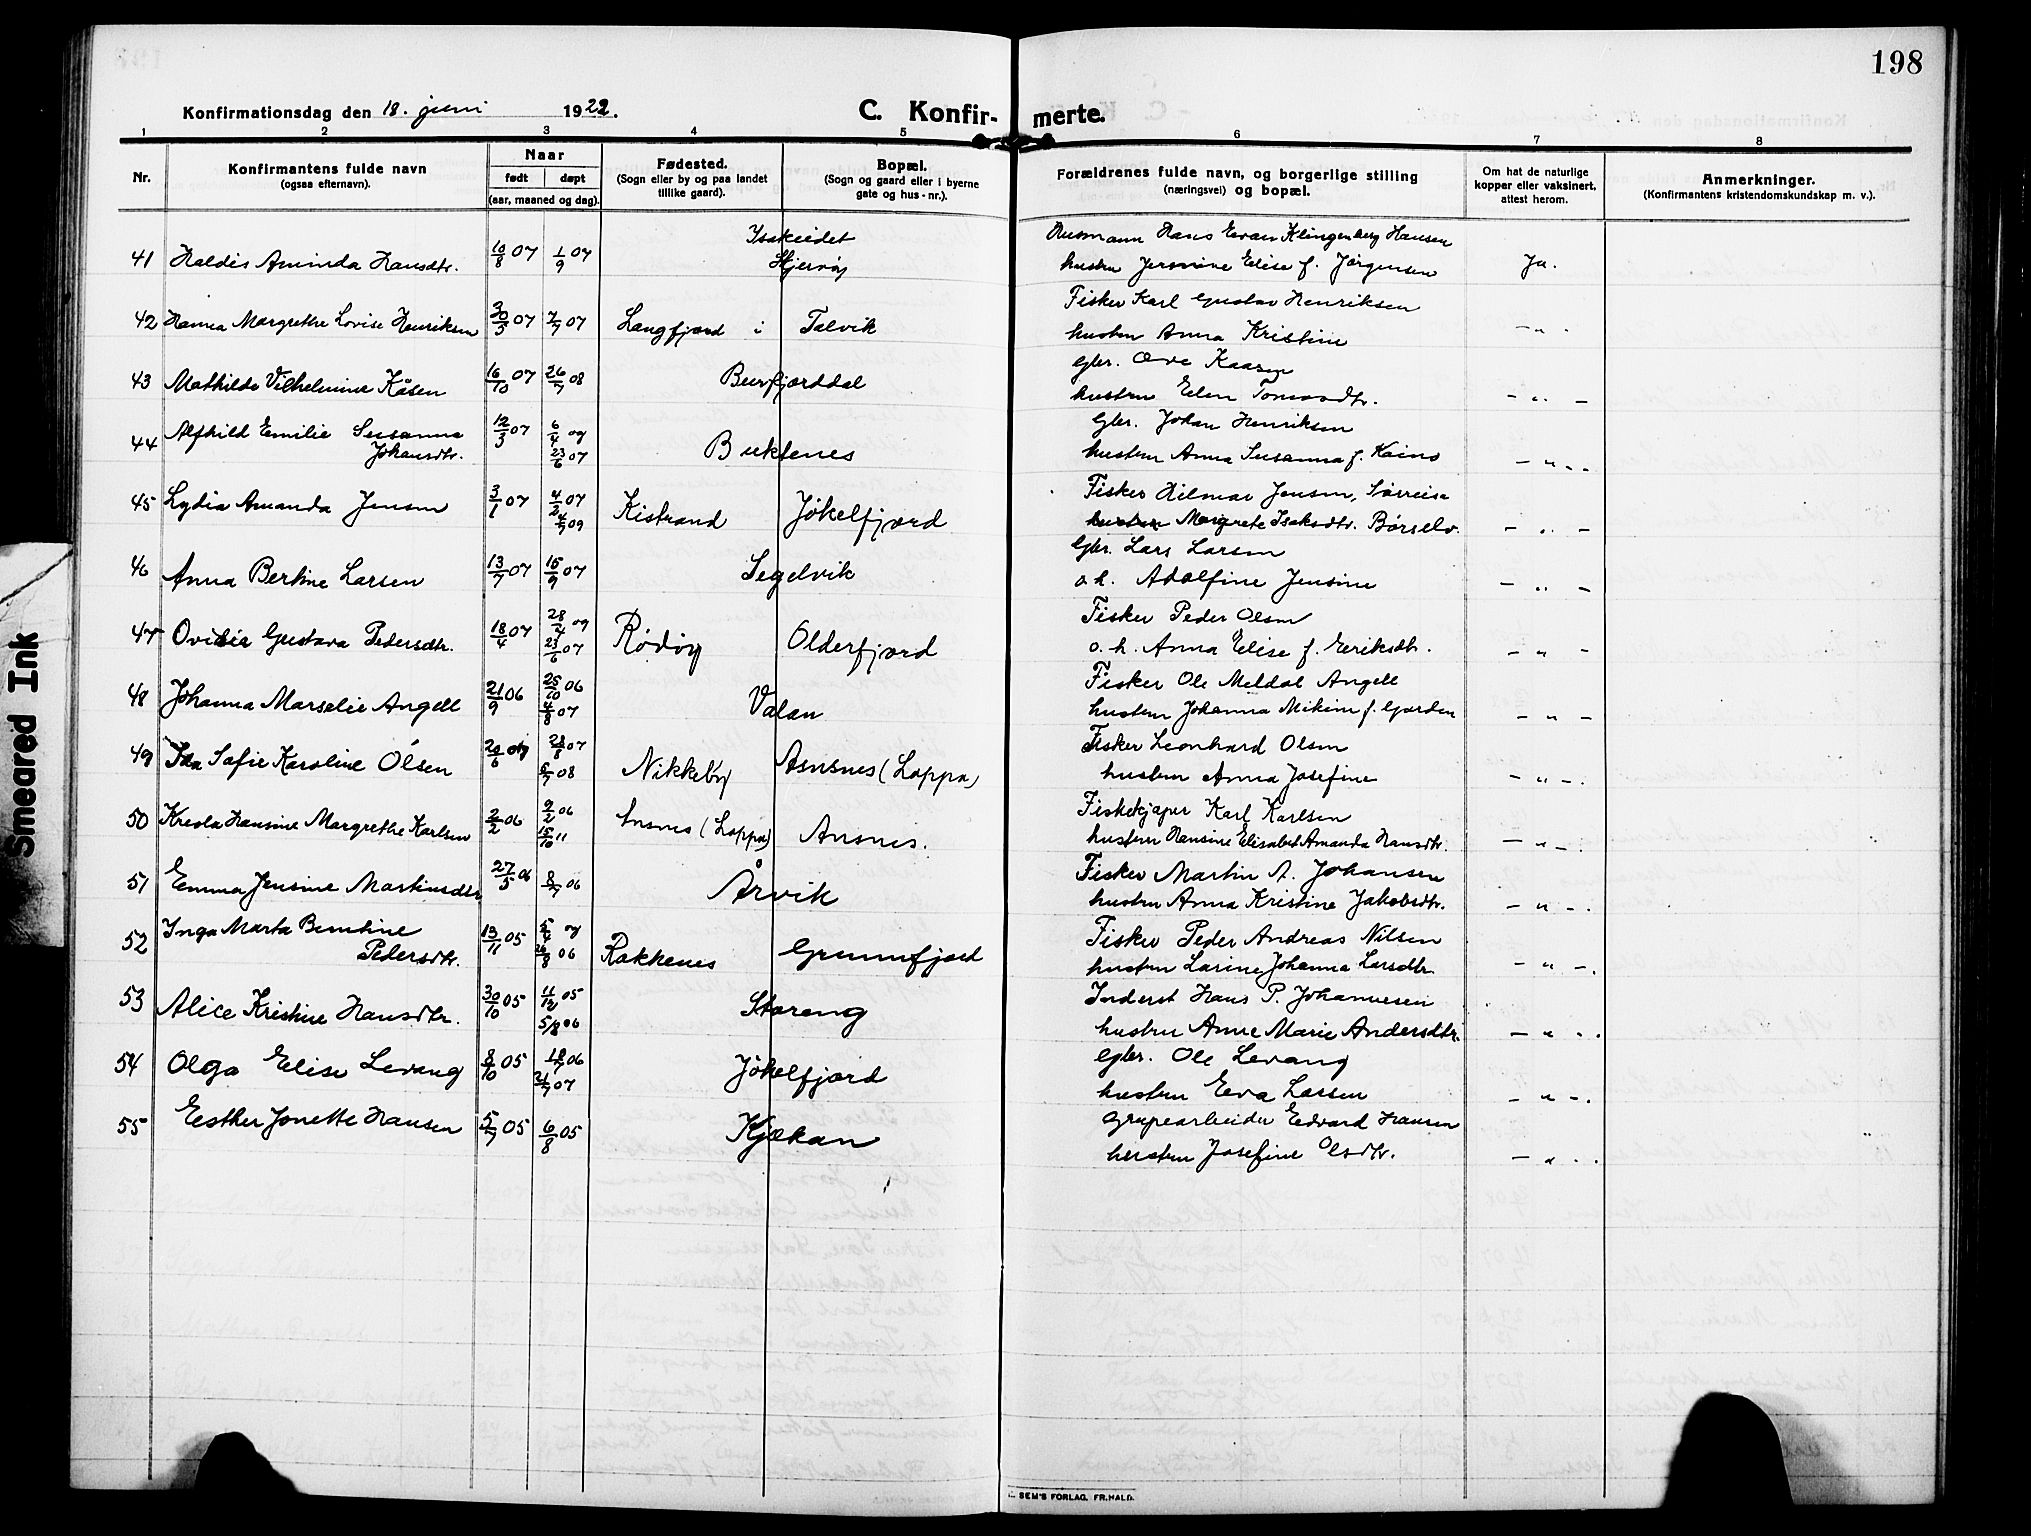 198
Konfirmationsdag den 18. juni 1922.
C. Konfir-merte.
1 2 3 4 5 6 7 8
Nr.
Konfirmantens fulde navn
(ogsaa efternavn).
Naar
født døpt
(aar, maaned og dag).
Fødested.
(Sogn eller by og paa landet
tillike gaard).
Bopæl.
(Sogn og gaard eller i byerne
gate og hus-nr.).
Forældrenes fulde navn, og borgerlige stilling
(næringsvei) og bopæl.
Om hat de naturlige
kopper eller vaksinert,
attest herom.
Anmerkninger.
(Konfirmantens kristendomskundskap m. v.).
Husmann Hans Evan Klingenberg Hansen
41 Haldis Aminda Hansdtr. 10/8 07 1/9 07 Isakeidet Skjervøy hustru Jersmine Elise f. Jørgensen Ja.
Fisker Karl Gustav Henriksen
42 Hanna Margrethe Lovise Henriksen 30/3 07 7/7 07 Langfjord i Talvik hustru Anna Kristine – „ –
gbr. Ove Kaasen
43 Mathilde Vilhelmine Kåsen 16/10 07 26/7 08 Burfjorddal hustru Elen Tomasdtr. – „ –
Gbr. Johan Henriksen
44 Alfhild Emilie Susanna Johansdtr. 12/3 07 6/4 07 23/6 07 Buktenes hustru Anna Susanna f. Kaino – „ –
Fisker Hilmar Jensen, Sørreisa
45 Lydia Amanda Jensen 3/1 07 4/2 07 4/7 09 Kistrand Jökelfjord hustru Margrete Isaksdtr. Børselv. – „ –
Gbr. Lars Larsen
46 Anna Bertine Larsen 13/7 07 15/9 07 Segelvik o.h. Adolfine Jensine – „ –
Fisker Peder Olsen
47 Ovidia Gustava Pedersdtr. 18/4 07 28/4 07 23/6 07 Rødøy Olderfjord o.h. Anna Elise f. Eriksdtr. – „ –
Fisker Ole Meldal Angell
48 Johanna Marselie Angell 21/9 06 25/10 06 4/8 07 Valan hustru Johanna Mikine f. Garden – „ –
Fisker Leonhard Olsen
49 Ida Sofie Karoline Olsen 20/6 07 28/8 07 5/7 08 Nikkeby Asnsnes (Loppa) hustru Anna Josefine – „ –
Fiskekjøper Karl Karlsen
50 Hansine Margrethe Karlsen 2/2 06 2/2 06 15/10 11 Ansnes (Loppa) Ansnes. hustru Hansine Elisabet Amanda Hansdtr. – „ –
Fisker Martin A. Johansen
51 Emma Jensine Martinsdtr 27/5 06 8/7 06 Årvik hustru Anna Kristine Jakobsdtr. – „ –
Fisker Peder Andreas Nilsen
52 Inga Marta Berntine Pedersdtr. 13/11 05 06 Rakkenes Grunnfjord hustru Larine Johanna Larsdtr. – „ –
Inderst Hans P. Johannesen
53 Alice Kristine Hansdtr. 30/10 05 11/12 05 5/8 06 Storeng hustru Anne Marie Andersdtr. – „ –
gbr. Ole Levang
54 Olga Elise Levang 8/10 05 06 07 Jökelfjord hustru Eva Larsen – „ –
Grupearbeider Edvard Hansen
55 Esther Jonette Hansen 5/7 05 6/8 05 Kjækan hustru Josefine Olsdtr. – „ –
SEM'S FORLAG, FR.HALD.
Smeared Ink